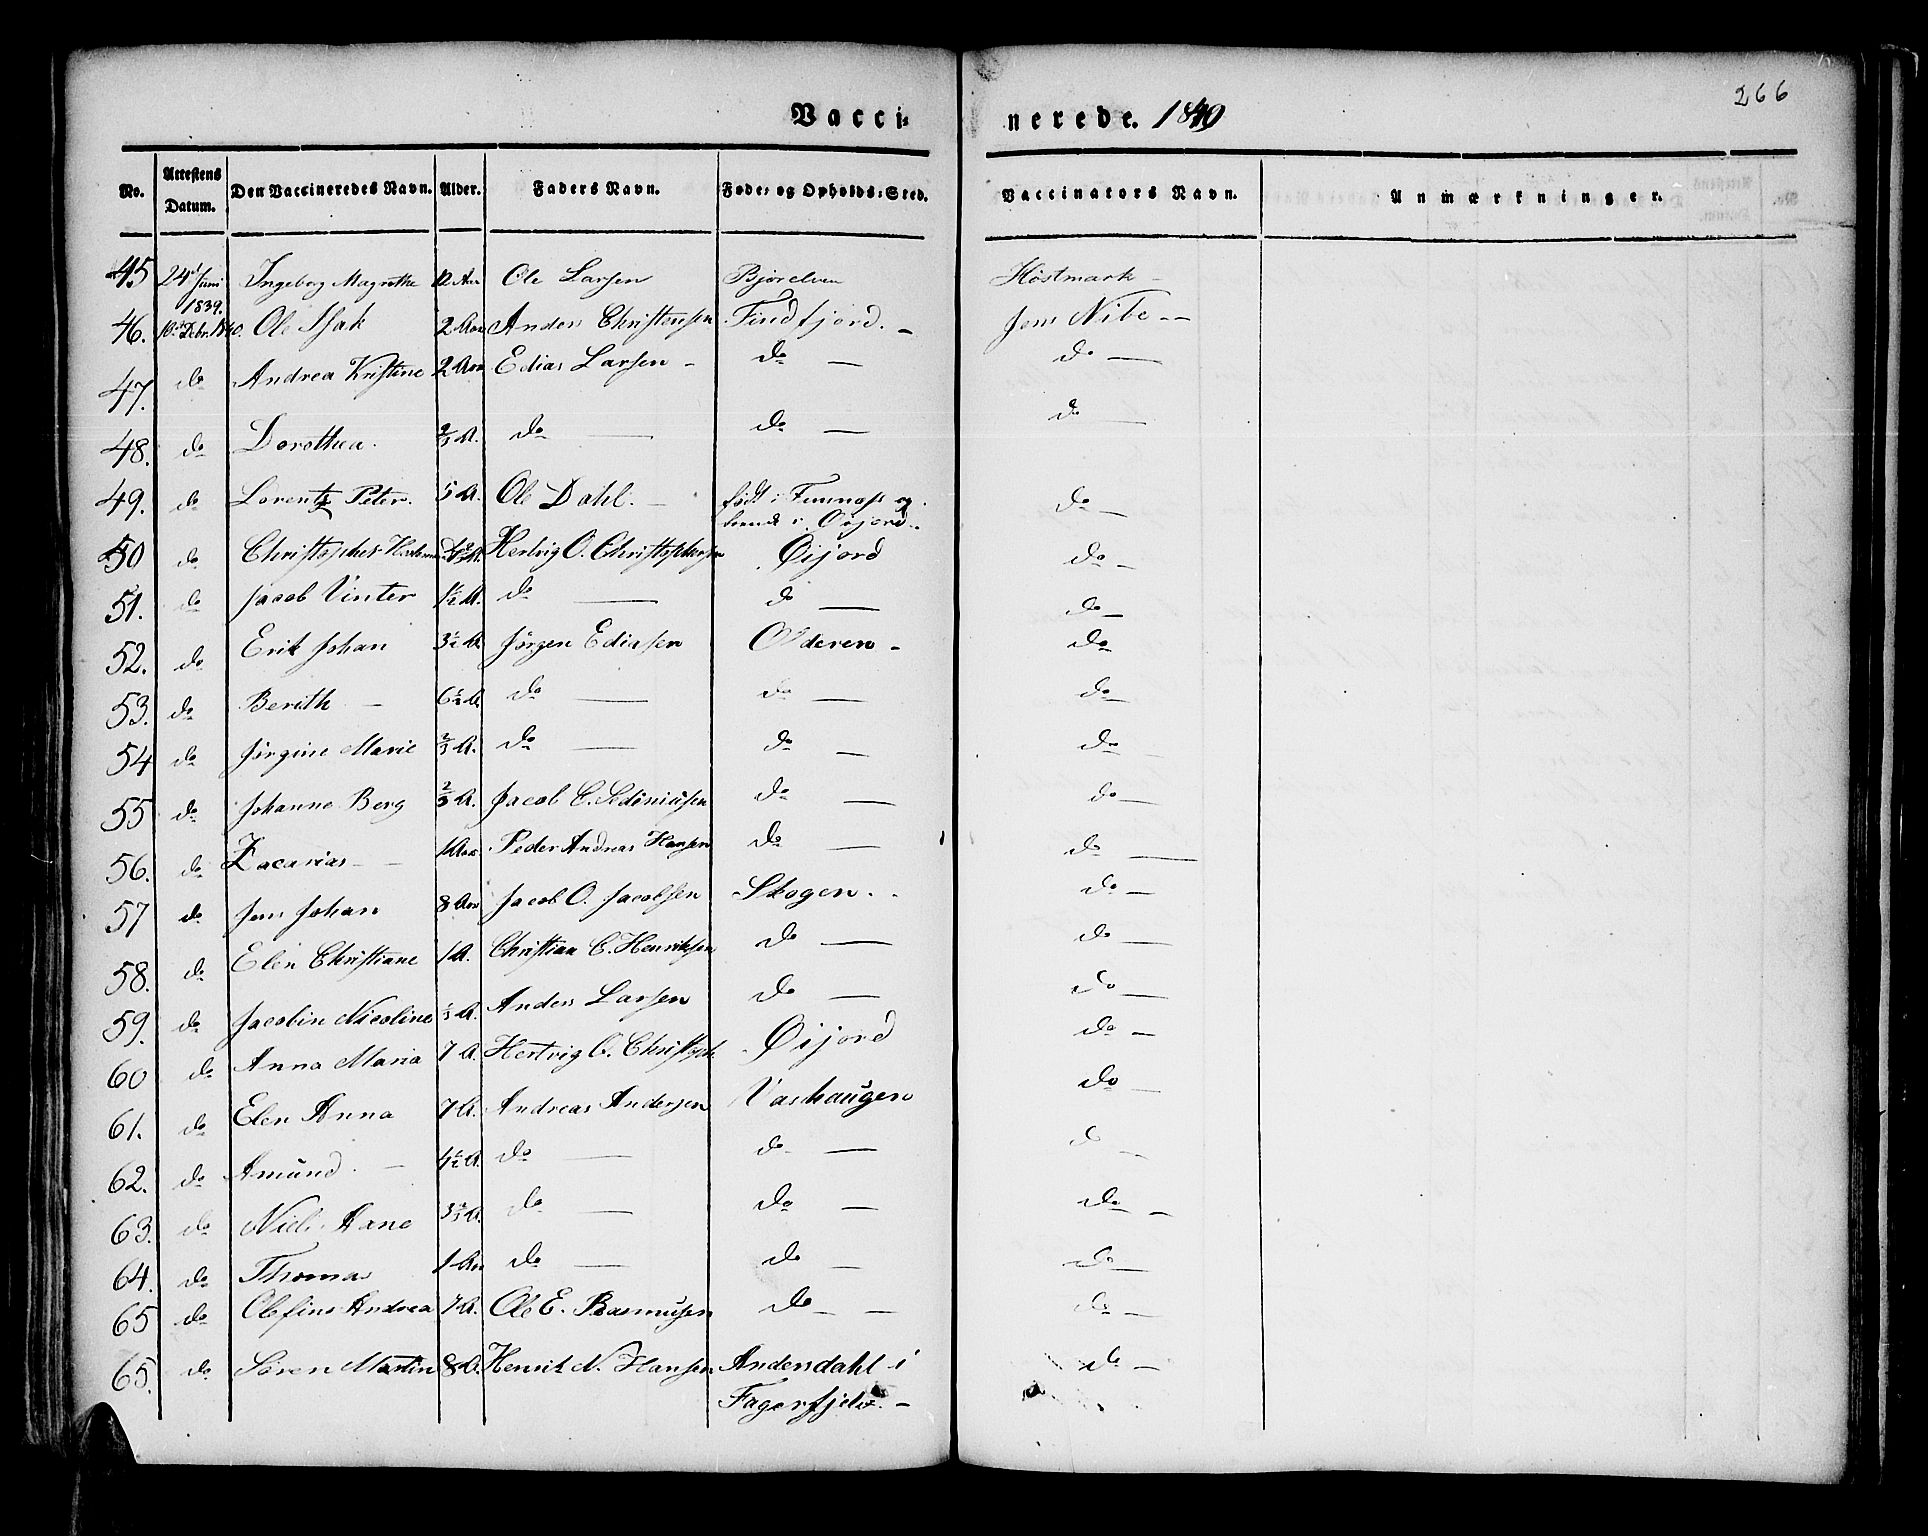 266
Vacci-
nerede. 1840
No. Attestens Datum. Den Vaccineredes Navn. Alder. Faders Navn. Føde- og Opholds-Sted. Vaccinators Navn. Anmærkninger.
45 24d Juni 1839. Ingeborg Magrethe 12 Aar Ole Larsen Bjorelven Höstmark -
46. 10de Debr. 1840. Ole Isak 2 Aar Anders Christensen Findfjord. - Jens Nibe --
47. do Andrea Kristine 2 Aar Edias Larsen - do — do —
48. do Dorothea. 2/3 A. do — do — do —
49. do Lorentz Peter. 5 A. Ole Dahl. - født i og do -
boende i Øijord.
50 do Christopher Hertvig O. Christophersen Øijord do -
51. do Jacob Vinter 1½ A. do — do — do —
52. do Erik Johan 3½ A. Jørgen Ediassen Olderen - do
53. do Berith - 6½ A. do — do — do —
54 do Jørgine Marie 2/3 A. do — do — do —
55 do Johanne Berg 2/3 A. Jacob C. do — do —
56. do Zacarias - 1 Aar Peder Andreas Hansen do — do —
57 do Jens Johan 8 Aar Jacob O. Jacobsen Skogen. - do —
58. do Elen Christiane 1 A. Christian C. Henriksen do — do —
59. do Jacobin Nicoline A. Anders Larsen do — do —
60 do Anna Maria 7 A. Hertvig O. Christoph Øijord do —
61. do Elen Anna 7 A. Andreas Andersen Vashaugen do —
62. do Amund. - 4½ A. do — do — do —
63. do Niels Hans 3 A. do — do — do —
64. do Thomas 1 Aar do — do — do —
65 do Olefine Andrea 7 A. Ole E. Rasmusen do - - do —
65. do Søren Martin 8 A. Henrik N. Hansen Andersdahl i do —
Fagerfjeld. -